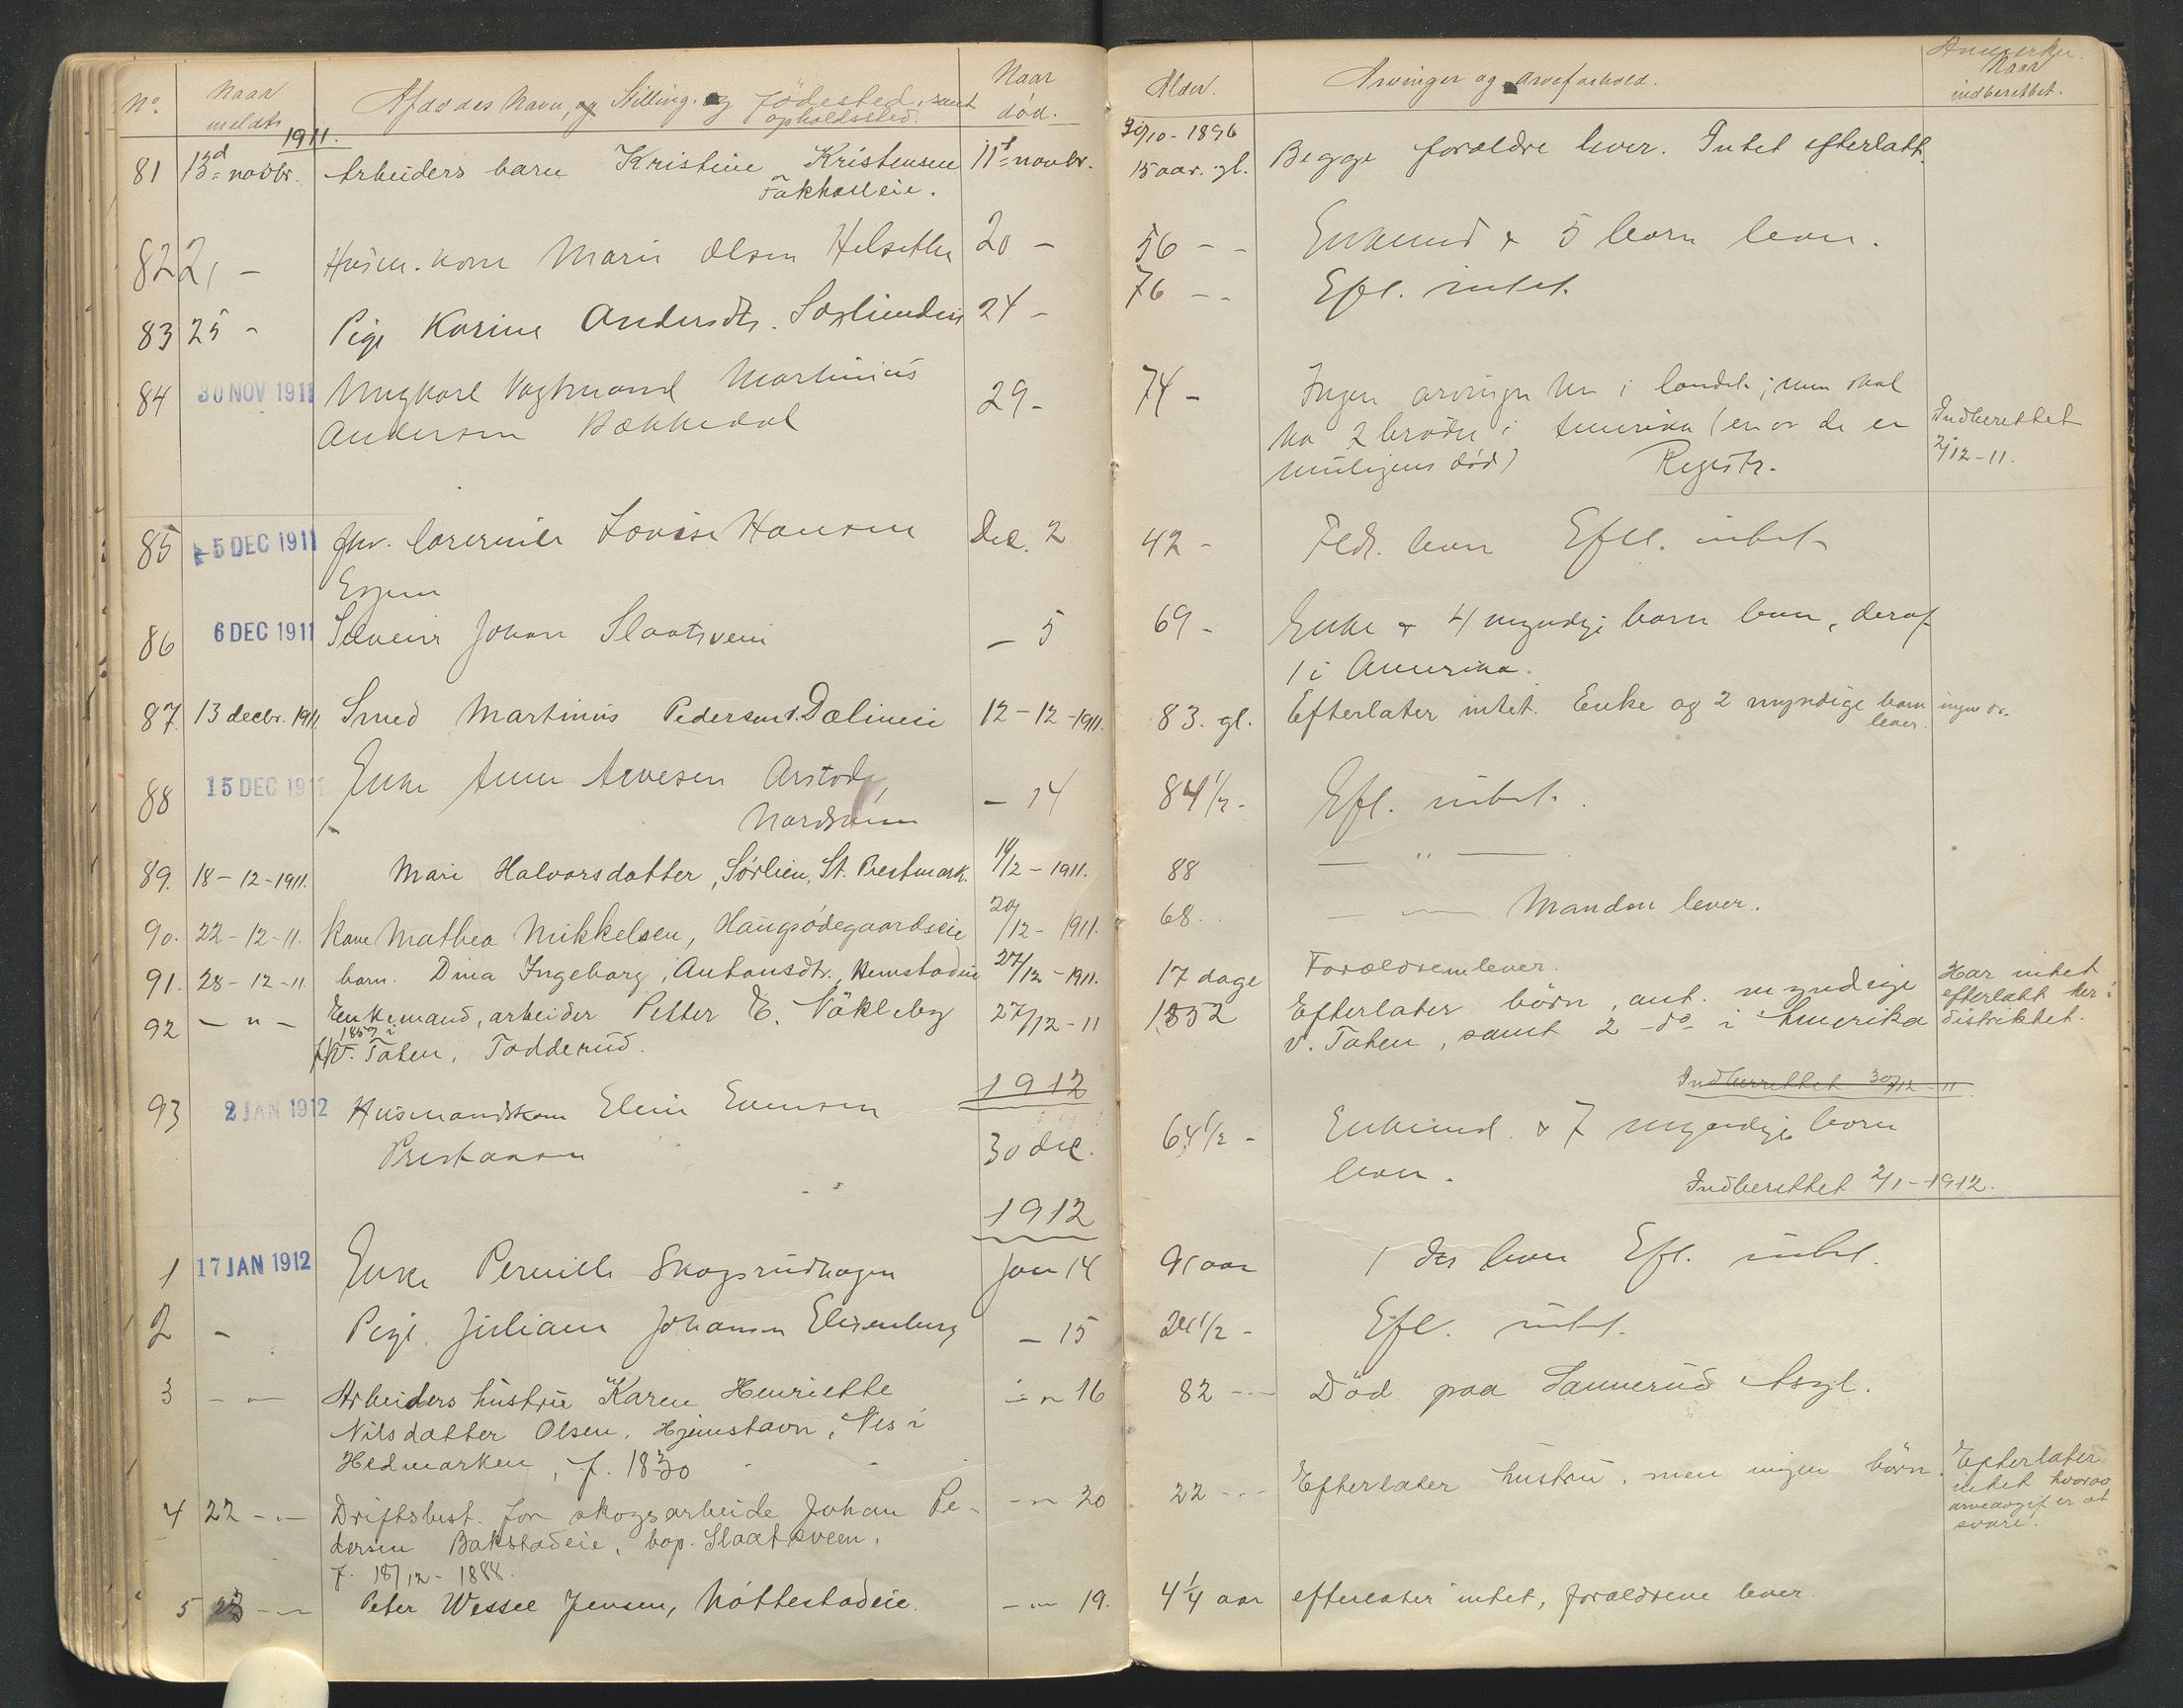 No. Naar meldt Afdødes Navn, og Stilling og fødested, samt opholdssted. Naar død.
Alder. Arvinger og arveforhold. Anmerkn. Naar indberettet.
1911.
81 13d novbr. Arbeiders barn Kristine Kristensen 11t novbr. 30/10-1896 15 aar gl. Begge forældre lever. Intet efterlatt.
82 21 - Husm. kone Marie Olsen Helsethe 20 - 56 - - Enkemd & 5 born lever.
83 25 - Pige Karine Andersdtr. 24 - 76 - - Efl. intet.
84 30 NOV 1911 Ungkarl Martinius 29 - 74 - Ingen arvinger her i landet; men skal
Andersen Bækkedal ha 2 brødre i Amerika (en av de er Indberettet
muligens død) Registr. 2/12-11.
85 5 DEC 1911 Lovise Hansen Dec. 2 42 - lever Efl. intet
86 6 DEC 1911 Johan Slaatsveen - 5 69 - Enke & 4 myndige born lever, deraf
1 i Amerika.
87 13 decbr. 1911. Smed Martinus Pedersen Dælineie 12-12-1911. 83. gl. Efterlater intet. Enke og 2 myndige barn lever. ingen do.
88 15 DEC 1911 Enke Arnesen - 14 84 1/2 - Efl. intet.
89. 18-12-1911. Mari Halvorsdatter, Sørlien, St. Prestmark. /12-1911. 88 — " —
90. 22-12-11. Kone Mathea Mikkelsen, Haugsødegaardseie 20/12-1911. 68. — " — Manden lever.
91. 28-12-11 barn. Dina Ingeborg, Antonsdtr., 27/12-1911. 17 dage Forældrene lever.
92 - " - Enkemand, arbeider Petter E. Nökleby 27/12-11 1852 Efterlater börn, ant. myndige Har intet efterlatt her i distriktet.
f. 1852 i V. Toten, Todderud. V. Toten, samt 2 do i Amerika
Indberettet 30/12-11
1912
93 2 JAN 1912 Husmandskone Eline Evensen 30 dec. 64 1/2 - Enkemd. & 7 myndige born
lever.
Indberettet 2/1-1912.
1912
1 17 JAN 1912 Enke Pernille Skogsrudhagen Jan 14 91 aar 1 dtr lever Efl. intet.
2 - Pige Juliane Johansen Elisenberg - 15 24 1/2 - Efl. intet.
3 - " - Arbeiders hustru Karen Henriette - " - 16 82 - - Död paa Sannerud Asyl.
Nilsdatter Olsen, Hjemstavn, Nes i
Hedmarken, f. 1830
4 22 - " - Driftsbest. for skogsarbeide Johan Pe- - " - 20 22 - " - Efterlater hustru, men ingen börn. Efterlater intet hvorav arveavgift er at svare.
dersen Bakstadeie, bop. Slaatsveen,
f. 18/12-1888.
5 23 - " - Peter Wessel Jensen, Nöttestadeie. - " - 19. 4 1/4 aar efterlater intet, forældrene lever.